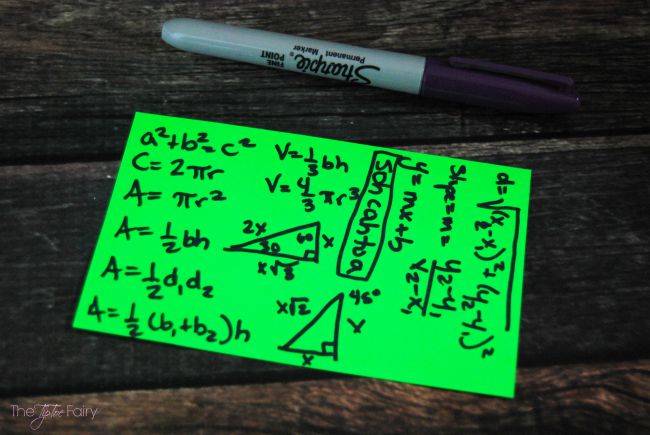 Sharpie®
Permanent Marker
FINE
POINT
a²+b²=c²
C=2πr
A=πr²
A=½bh
A=½d₁d₂
A=½(b₁+b₂)h
V=⅓bh
V=4/3πr³
2x
30
60
x
x√3
x√2
45°
x
x
Soh cah toa
y=mx+b
Slope=m=y₂-y₁/x₂-x₁
d=√(x₂-x₁)²+(y₂-y₁)²
The TipToe Fairy